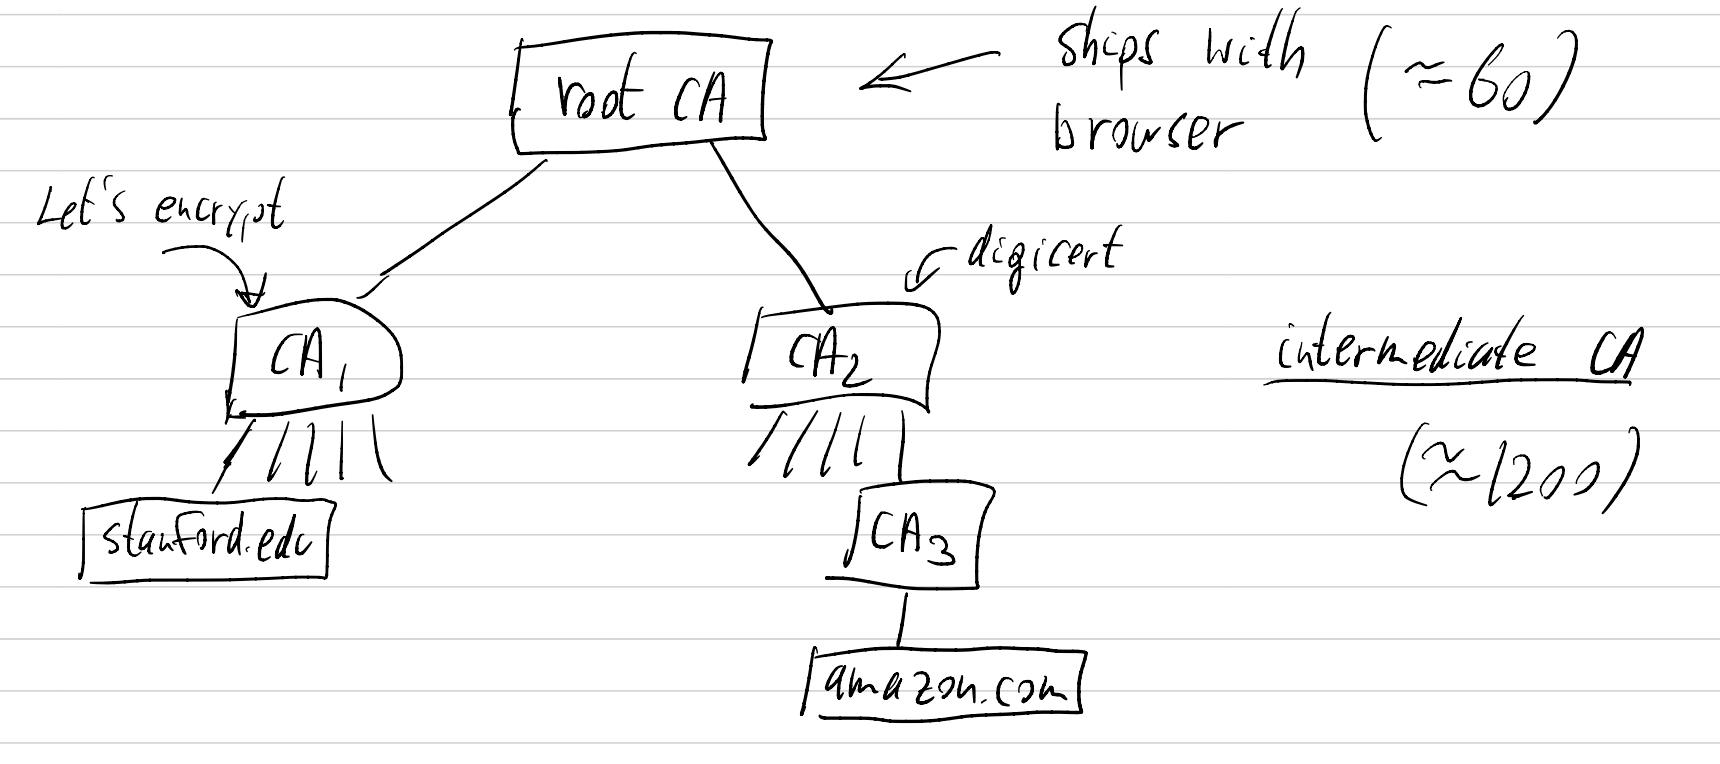 root CA
ships with
browser
(≈60)
Let's encrypt
digicert
CA₁
CA₂
intermediate CA
(≈1200)
stanford.edu
CA₃
amazon.com